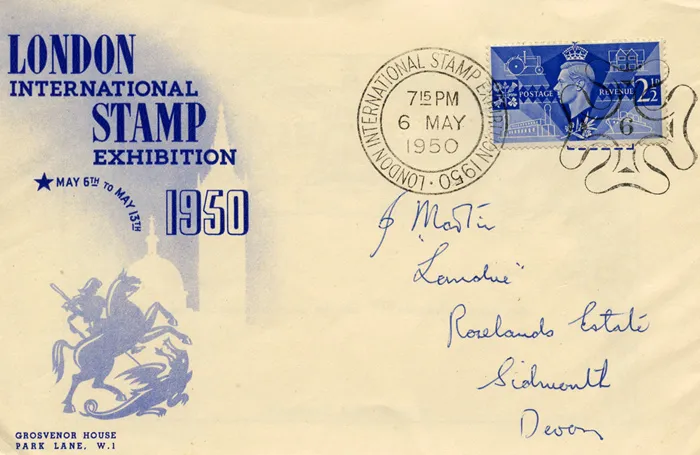 LONDON
INTERNATIONAL
STAMP
EXHIBITION
★ MAY 6TH TO MAY 13TH
1950
GROSVENOR HOUSE
PARK LANE, W.1
LONDON INTERNATIONAL STAMP EXHIBITION 1950
7 15 PM
6 MAY
1950
POSTAGE REVENUE 2½D
6
Martin
"
"
Roselands Estate
Sidmouth
Devon